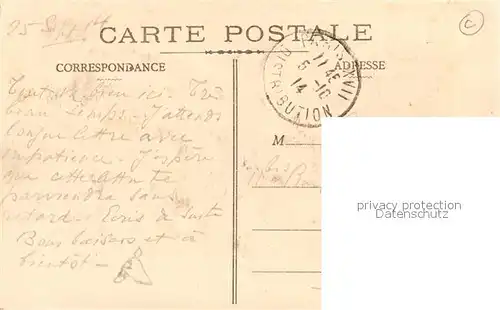 25 Sept 14
CARTE POSTALE
CORRESPONDANCE
ADRESSE
PARIS XVIII
11 45
5 -10
14
DISTRIBUTION
Tout va bien ici. Très
beau temps. J'attends
longue lettre avec
impatience. J'espère
que cette lettre te
parviendra sans
retard. Ecris de suite
Bons baisers et à
bientôt -
M
privacy protection
Datenschutz
©